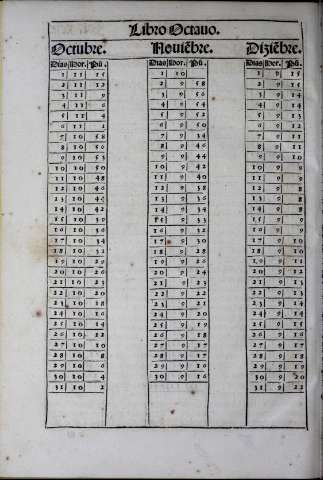 Libro Octauo.
Octubre. Nouiẽbre. Diziẽbre.
Dias Hor. Pũ. Dias Hor. Pũ. Dias Hor. Pũ.
1 11 15 1 10 1 9 15
2 11 12 2 9 58 2 9 15
3 11 9 3 9 56 3 9 14
4 11 6 4 9 54 4 9 14
5 11 4 5 9 52 5 9 13
6 11 2 6 9 50 6 9 12
7 10 58 7 9 34 7 9 11
8 10 56 8 9 46 8 9 11
9 10 53 9 9 44 9 9 10
10 10 50 10 9 42 10 9 10
11 10 48 11 9 40 11 9 9
12 10 46 12 9 38 12 9 8
13 10 46 13 9 36 13 9 8
14 10 42 14 9 34 14 9 8
15 10 39 15 9 33 15 9 9
16 10 36 16 9 32 16 9 9
17 10 34 17 9 30 17 9 10
18 10 32 18 9 28 18 9 10
19 10 29 19 9 26 19 9 11
20 10 26 20 9 24 20 9 12
21 10 23 21 9 21 9 12
22 10 20 22 9 21 22 9 13
23 10 18 23 9 21 23 9 14
24 10 16 24 9 20 24 9 14
25 10 14 25 9 19 25 9 15
26 10 12 26 9 18 26 9 16
27 10 10 27 9 17 27 9 17
28 10 8 28 9 17 28 9 18
29 10 6 29 9 16 29 9
30 10 4 30 9 16 30 9 20
31 10 2 31 9 22